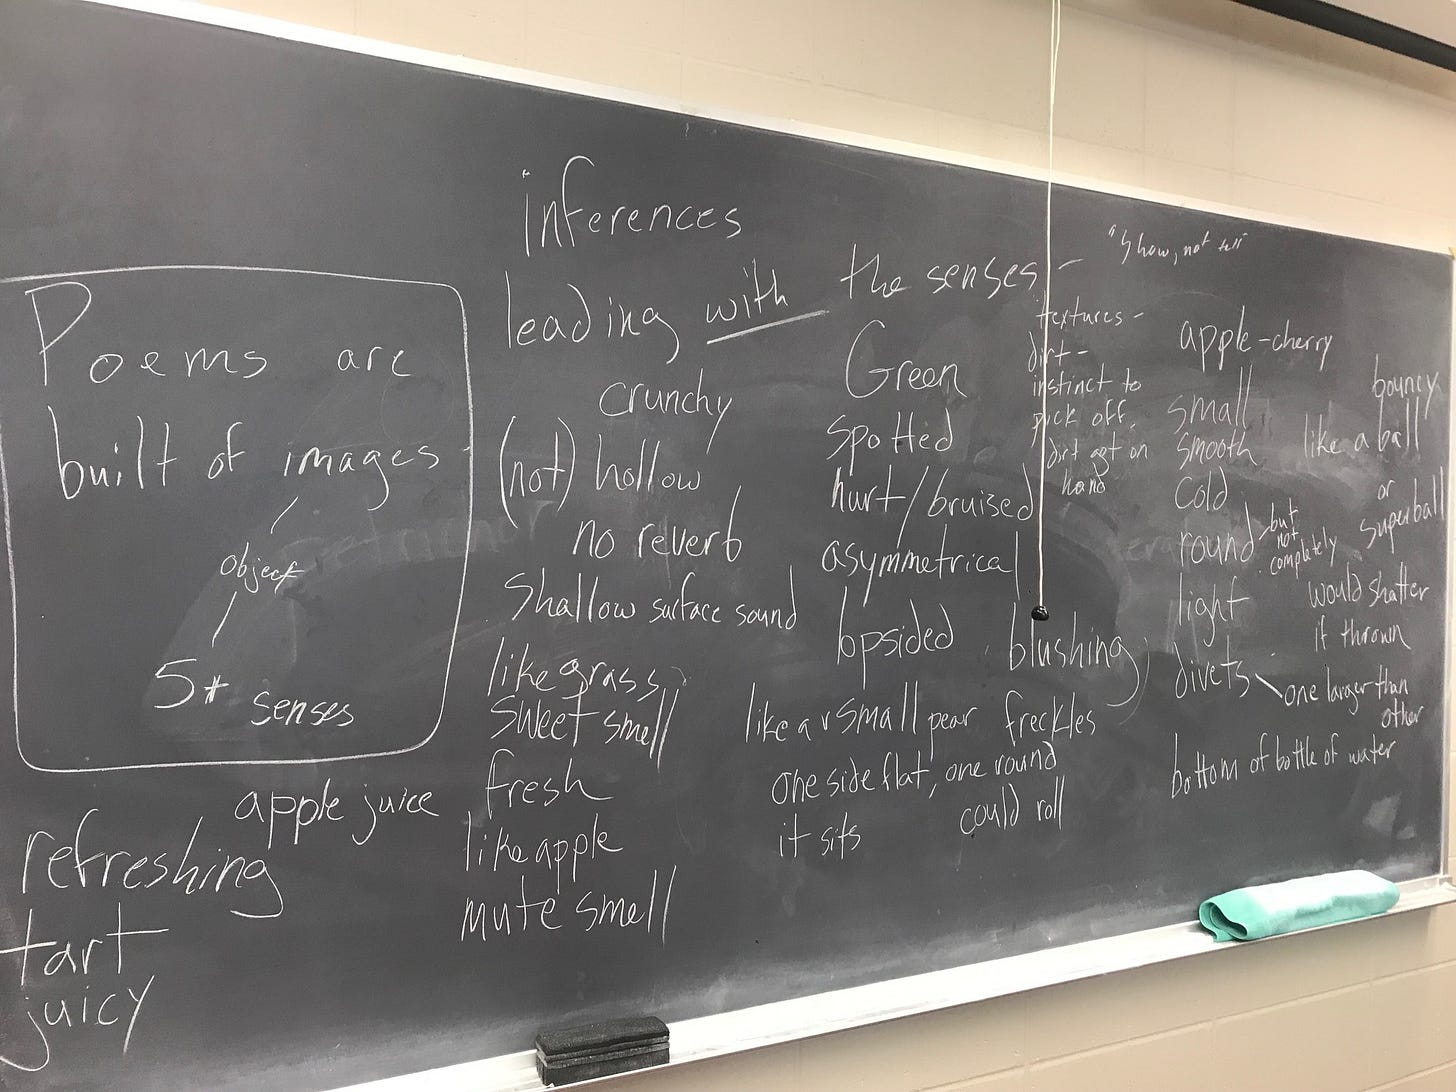 inferences
leading with the senses - "show, not tell"
Poems are
built of images
object
5+ senses
apple juice
refreshing
tart
juicy
crunchy
(not) hollow
no reverb
Shallow surface sound
like grass
sweet smell
fresh
like apple
mute smell
Green
spotted
hurt/bruised
asymmetrical
lopsided
blushing
like a small pear freckles
one side flat, one round
it sits
could roll
textures -
dirt -
instinct to
pick off,
dirt get on
hand
apple-cherry
small
smooth
cold
round
but
not
completely
light
divets
one larger than
other
bottom of bottle of water
bouncy
like a ball
or
superball
would shatter
if thrown